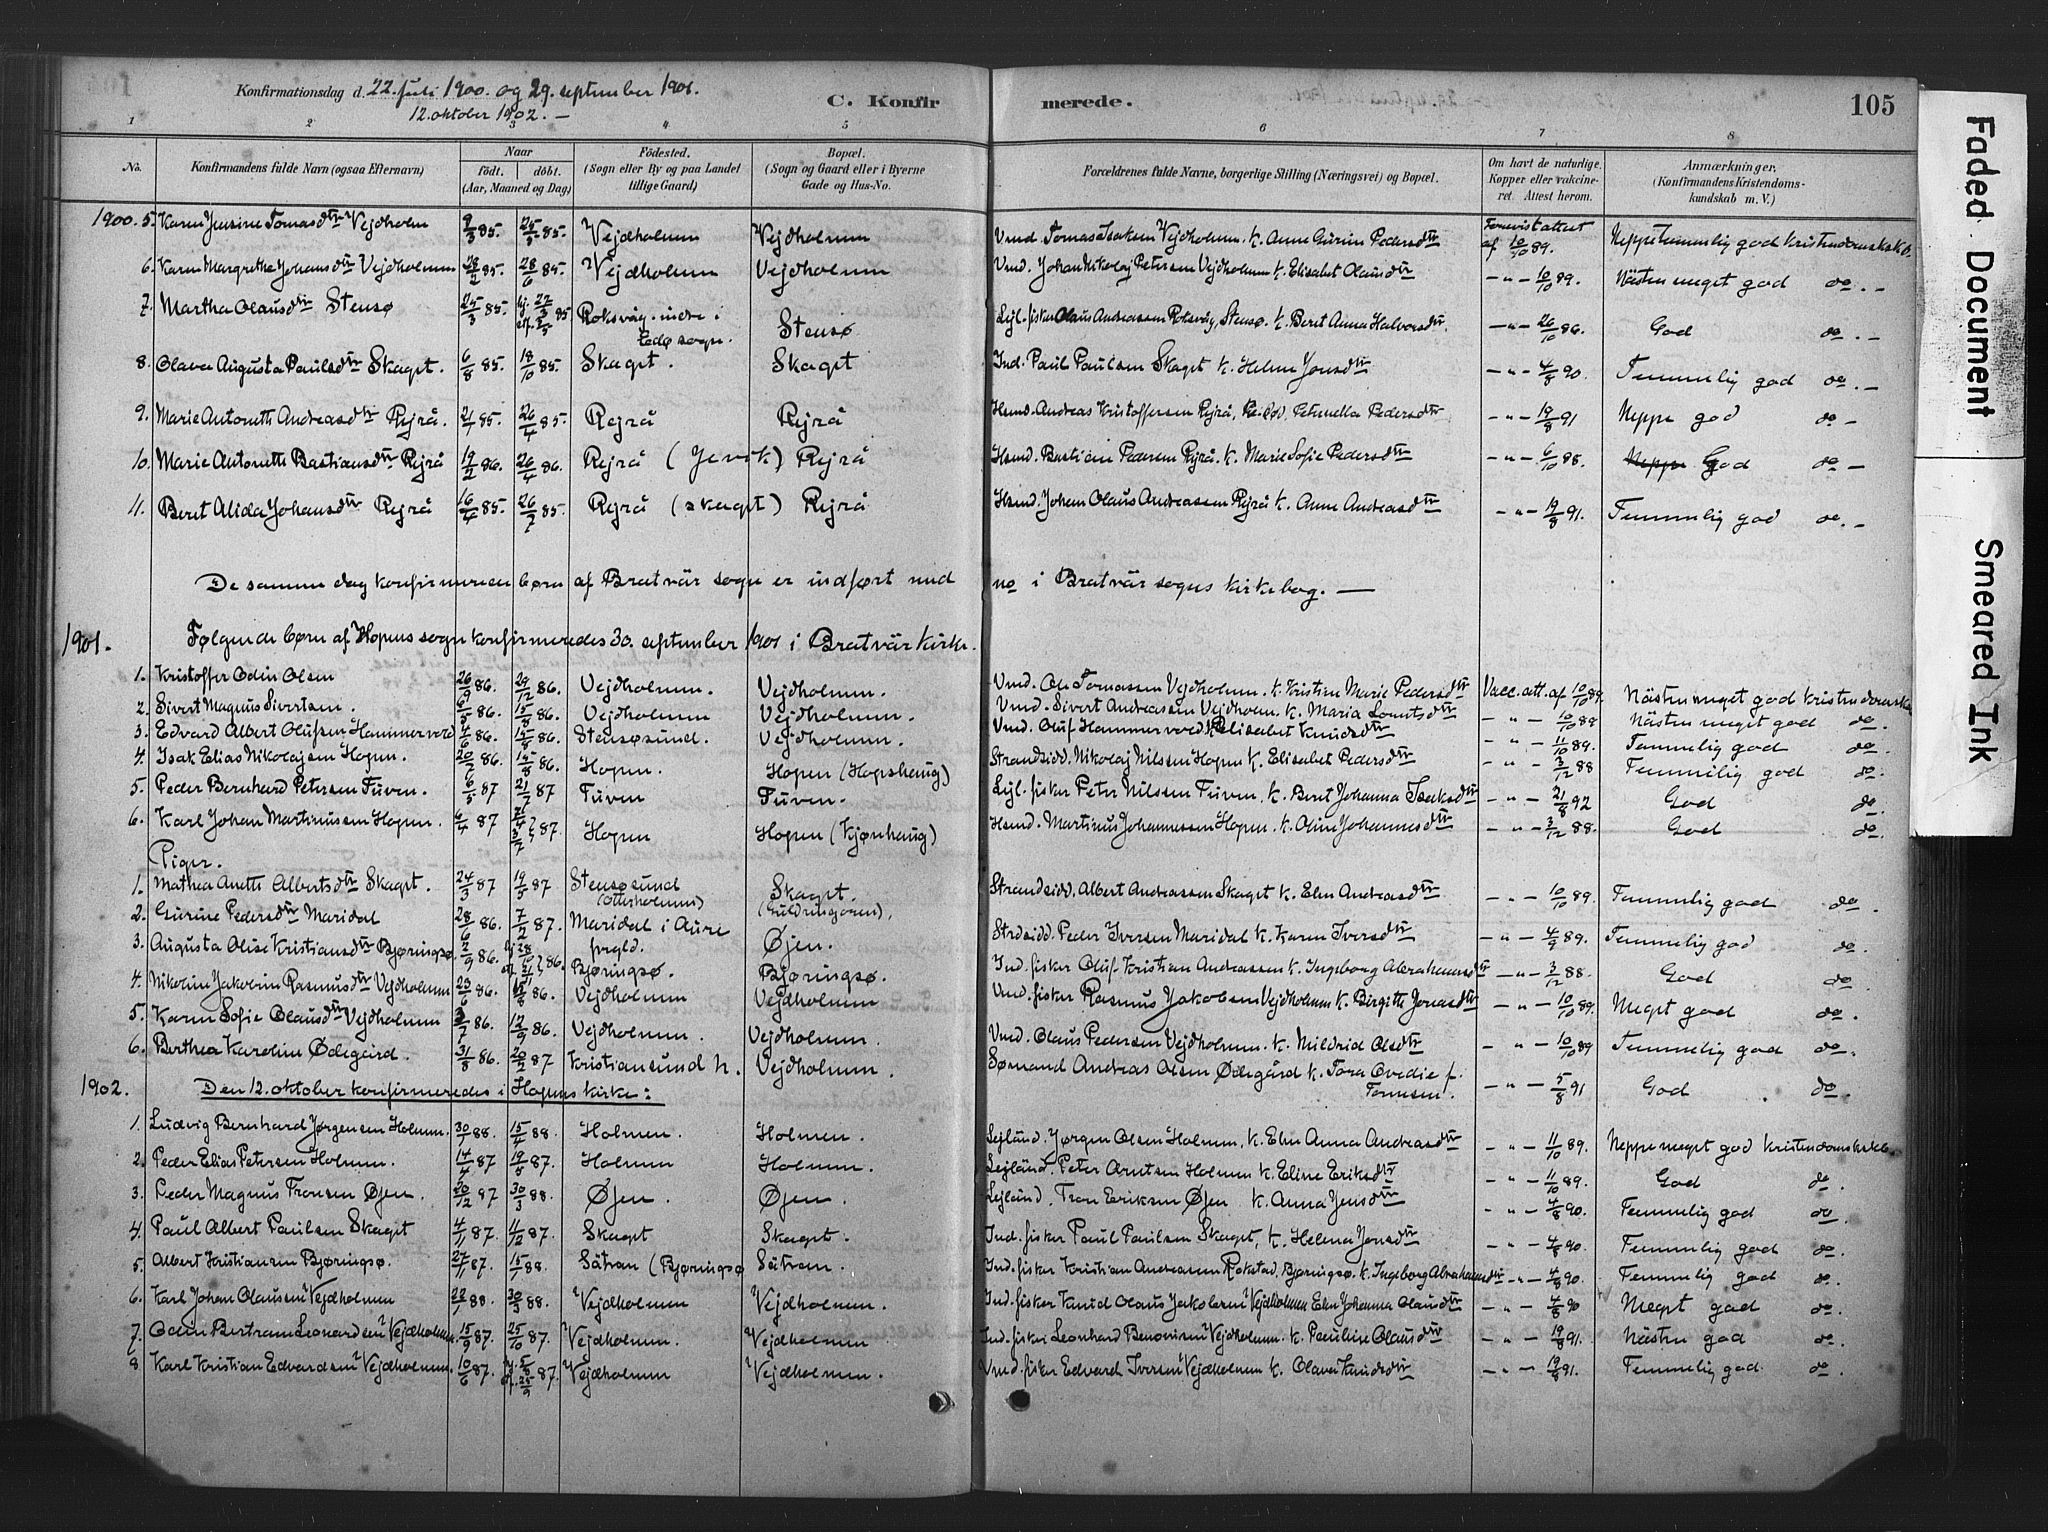 Konfirmationsdag d. 22. juli 1900. og 29. september 1901.
12. oktober 1902. —
C. Konfirmerede.
105
1 2 3 4 5 6 7 8
No. Konfirmandens fulde Navn (ogsaa Efternavn) Naar født. døbt. (Aar, Maaned og Dag) Fødested. (Sogn eller By og paa Landet tillige Gaard) Bopæl. (Sogn og Gaard eller i Byerne Gade og Hus-No.) Forældrenes fulde Navne, borgerlige Stilling (Næringsvei) og Bopæl. Om havt de naturlige Kopper eller vakcineret. Attest herom. Anmærkninger. (Konfirmandens Kristendomskundskab m. V.)
1900. 5. Karen Jensine Tomasdtr Vejdholm 9/3 85. 25/5 85. Vejdholmen Vejdholmen Vmd. Tomas Isaksen Vejdholmen. k. Anne Gurine Pedersdtr Forevist attest af 10/10 89. Neppe temmelig god kristendomskdsk.
6. Karen Margrethe Johansdtr Vejdholmen 28/2 85. 28/6 85. Vejdholmen Vejdholmen Vmd. Johan Nikolaj Petersen Vejdholmen k. Elisabet Olausdtr —"— 10/10 89. Nästen meget god do. —
7. Martha Olausdtr Stensø 25/3 85. Roksvåg indre i Edø sogn. Stensø Lejl. fisker Olaus Andreassen Roksvåg, Stensø. k. Beret Anna Halvorsdtr —"— 26/10 86. God do. —
8. Olava Augusta Paulsdtr Skaget. 6/8 85. 18/10 85. Skaget. Skaget Ind. Paul Paulsen Skaget k. Helene Jonsdtr —"— 4/8 90. Temmelig god do. —
9. Marie Antonette Andreasdtr Rejrå. 21/1 85. 26/4 85. Rejrå Rejrå Hsmd. Andreas Kristoffersen Rejrå, Petrnella Pedersdtr —"— 19/8 91 Neppe god do —
10. Marie Antonette Bastiansdtr Rejrå 19/2 86. 26/4 86. Rejrå (Jervik) Rejrå Hsmd. Bastian Pedersen Rejrå. k. Marie Sofie Pedersdtr —"— 6/10 88. Neppe God do —
11. Beret Alida Johansdtr Rejrå 16/4 85. 26/7 85. Rejrå (skaget) Rejrå Hsmd. Johan Olaus Andreassen Rejrå k. Anne Andreasdtr —"— 19/8 91. Temmelig god do. —
De samme dag konfirmerede børn af Bratvär sogn er indført med no i Bratvär sogns kirkebog. —
1901. Følgende børn af Hopens sogn konfirmeredes 30. september 1901 i Bratvär kirke.
1. Kristoffer Odin Olsen 26/9 86. 29/12 86. Vejdholmen. Vejdholmen. Vmd. Ole Tomassen Vejdholmen. k. Kristine Marie Pedersdtr Vacc. att. af 10/10 89. Nästen meget god kristendomskdsk
2. Sivert Magnus Sivertsen. 6/5 86. 15/8 86. Vejdholmen Vejdholmen. Vmd. Sivert Andreassen Vejdholm. k. Maria Lontsdtr —"— 10/10 88 Nästen meget god do.
3. Edvard Albert Olufsen Hammervold 4/6 86. 15/8 86. Stensøsund. Vejdholmen. Vmd. Oluf Hammervold k. Elisabet Knudsdtr —"— 11/10 89. Temmelig god do.
4. Isak Elias Nikolajsen Hopen. 20/6 86. 15/8 86. Hopen. Hopen (Hopshaug) Strandsidd. Nikolaj Nilssen Hopen k. Elisabet Pedersdtr —"— 3/12 88 Temmelig god do.
5. Peder Bernhard Petersen Tuven. 6/5 87 21/7 87 Tuven Tuven. Lejl. fisker Peter Nilssen Tuven. k. Beret Johanna Isaksdtr —"— 21/8 92 God do.
6. Karl Johan Martinussen Hopen. 6/4 87 87. Hopen Hopen (Kjønhaug) Hsmd. Martinus Johannessen Hopen. k. Oline Johannesdtr —"— 3/12 88. God do.
Piger.
1. Mathea Anette Albertsdtr Skaget. 24/3 87 19/5 87 Stensøsund (Otterholmen) Skaget. (Guldringjoren). Strandsidd. Albert Andreassen Skaget k. Elen Andreasdtr —"— 10/10 89. Temmelig god do.
2. Gurine Pedersdtr Maridal 28/6 86. 7/2 87. Maridal i Aure prgld. Øjen. Strdsidd. Peder Iversen Maridal k. Karen Iversdtr —"— 4/9 89. Temmelig god do.
3. Augusta Oline Kristiansdtr Bjøringsø. 2/9 86. 86. Bjøringsø. Bjøringsø. Ind. fisker Oluf Kristian Andreassen k. Ingeborg Abrahamsdtr —"— 3/12 88. God do.
4. Nikoline Jakobine Rasmusdtr Vejdholmen 23/6 86. 15/8 86. Vejdholmen Vejdholmen Vmd. fisker Rasmus Jakobsen Vejdholmen k. Birgitte Jonasdtr —"— 10/10 89. Meget god do.
5. Karen Sofie Olausdtr Vejdholmen 3/7 86. 12/9 86. Vejdholmen. Vejdholmen. Vmd. Olaus Pedersen Vejdholmen. k. Mildrid Olsdtr —"— 10/10 89 Temmelig god do.
6. Berthea Karoline Ødegård. 31/8 86. 20/2 87 Kristiansund N. Vejdholmen. Sømand Andreas Olsen Ødegård k. Tora Ovedie f. Tønnesen. —"— 5/8 91 God do.
1902. Den 12. oktober konfirmeredes i Hopens kirke:
1. Ludvig Bernhard Jørgensen Holmen. 30/1 88. 15/4 88. Holmen. Holmen. Lejländ. Jørgen Olsen Holmen. k. Elen Anna Andreasdtr —"— 11/10 89. Neppe meget god kristendomskdsk.
2. Peder Elias Petersen Holmen. 14/4 87 19/5 87. Holmen Holmen. Lejländ. Peter Arntsen Holmen k. Eline Eriksdtr —"— 11/10 89. God do.
3. Peder Magnus Tronsen Øjen. 20/12 87 30/3 88. Øjen. Øjen. Lejländ. Tron Eriksen Øjen k. Anna Jensdtr —"— 4/8 90. Temmelig god do.
4. Paul Albert Paulsen Skaget 4/11 87. 11/12 87. Skaget Skaget. Ind. fisker Paul Paulsen Skaget, k. Helena Jonsdtr —"— 4/8 90. Temmelig god do.
5. Albert Kristiansen Bjøringsø. 27/11 87. 15/1 88. Sätran (Bjøringsø Sätran. Ind. fisker Kristian Andreassen Rokstad, Bjøringsø. k. Ingeborg Abrahamsdtr —"— 4/8 90. Temmelig god do.
6. Karl Johan Olaussen Vejdholmen 22/1 88. 30/3 88. Vejdholmen Vejdholmen. Ind. fisker Knud Olaus Jakobsen Vejdholmen Elen Johanna Olausdtr —"— 4/8 90 Meget god do.
7. Odin Bertram Leonardsen Vejdholmen. 15/9 87. 25/10 87. Vejdholmen. Vejdholmen Ind. fisker Leonhard Benonisen Vejdholmen. k. Pauline Olausdtr —"— 19/8 91. Nästen god do.
8 Karl Kristian Edvardsen Vejdholmen. 10/6 87. 87. Vejdholmen Vejdholmen. Vmd. fisker Edvard Iversen Vejdholmen k. Olava Knudsdtr —"— 19/8 91. Temmelig god do.
Faded Document
Smeared Ink